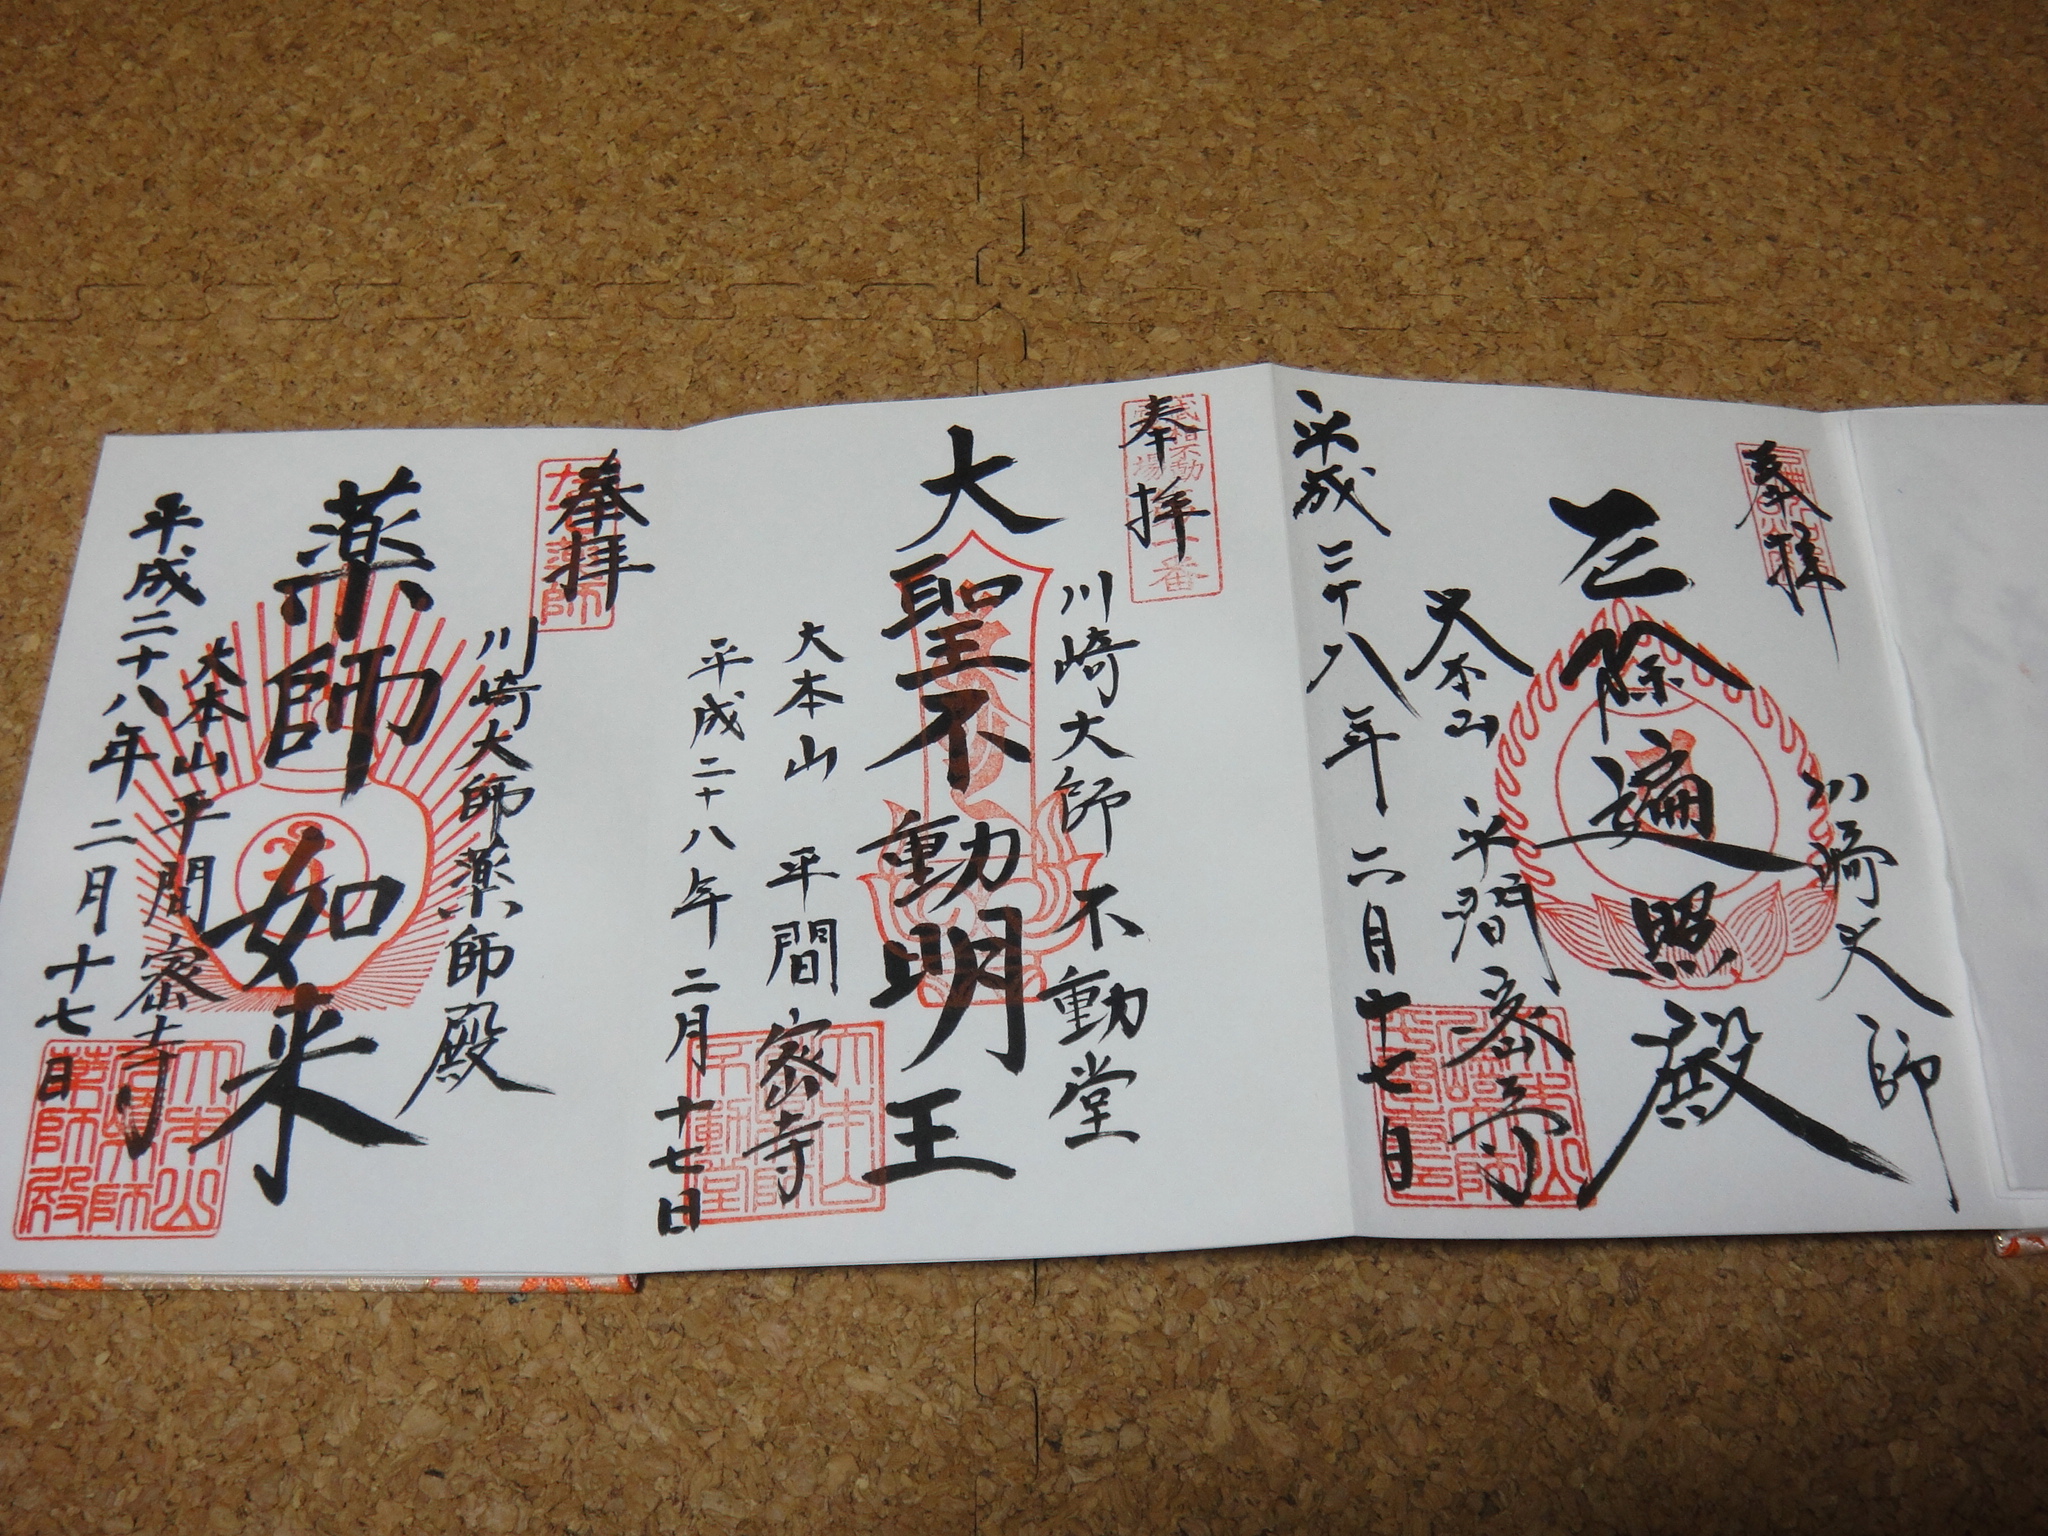 奉拝
川崎大師
厄除遍照殿
大本山 平間密寺
平成二十八年二月十七日
奉拝
川崎大師不動堂
大聖不動明王
大本山 平間密寺
平成二十八年二月十七日
奉拝
川崎大師薬師殿
薬師如来
大本山 平間密寺
平成二十八年二月十七日